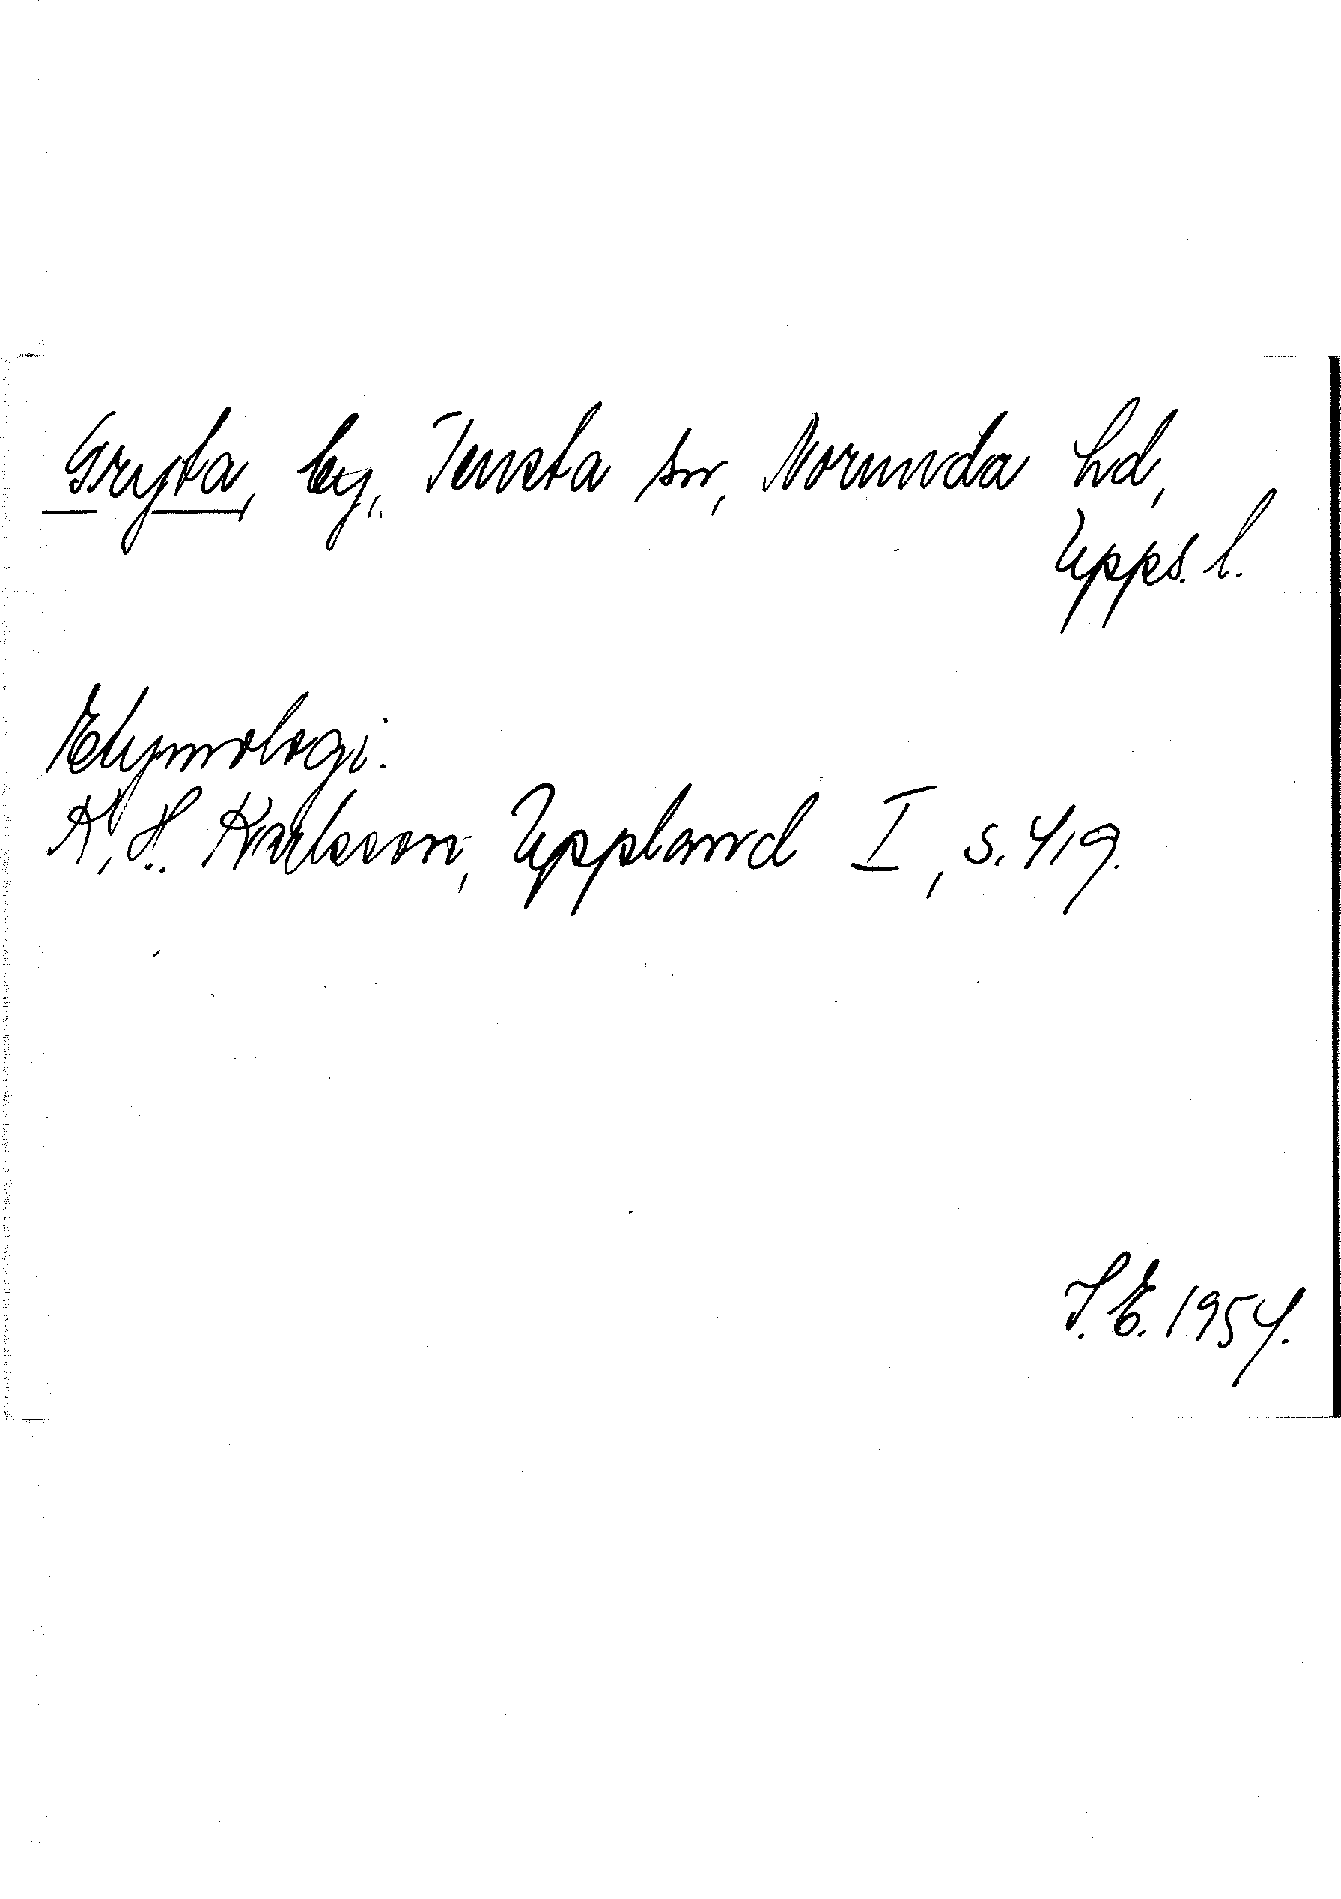 Gryta, by, Tensta sn, Norunda hd,
Upps. l.
Etymologi.
K. H. Karlsson, Uppland I, s. 419.
S. E. 1954.